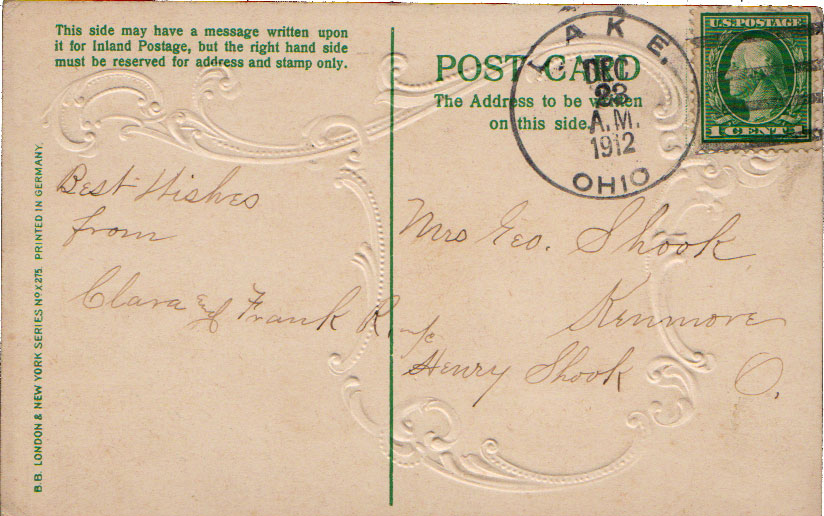 This side may have a message written upon
it for Inland Postage, but the right hand side
must be reserved for address and stamp only.
POST CARD
The Address to be written
on this side.
LAKE.
DEC
23
A.M.
1912
OHIO
U.S. POSTAGE
1 CENT 1
B.B. LONDON & NEW YORK SERIES No X275. PRINTED IN GERMANY.
Best Wishes
from
Clara and Frank R.
Mrs Geo. Shook
Kenmore
c/o
Henry Shook O.